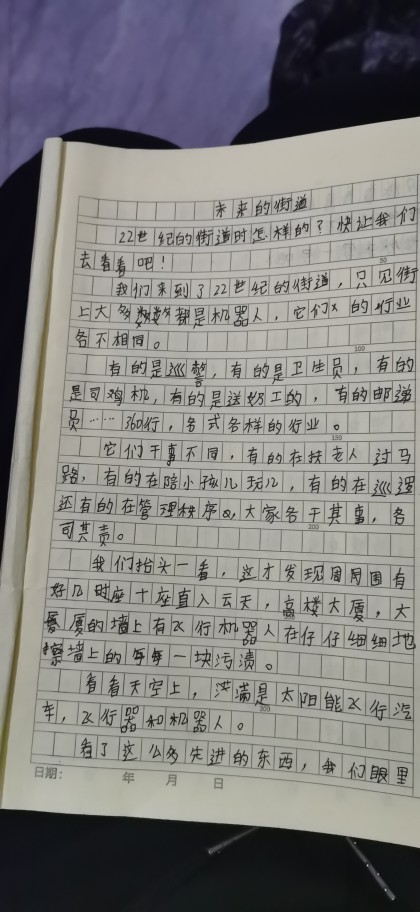 未来的街道
22世纪的街道时怎样的？快让我们
去看看吧！
50
我们来到了22世纪的街道，只见街
上大多数都是机器人，它们的行业
各不相同。
100
有的是巡警，有的是卫生员，有的
是司鸡机，有的是送奶工的，有的邮递
员……360行，各式各样的行业。
150
它们干事不同，有的在扶老人过马
路，有的在陪小孩儿玩儿，有的在巡逻
还有的在管理秩序，大家各干其事，各
200
司其责。
我们抬头一看，这才发现周围有
好几座十座直入云天，高楼大厦，大
厦的墙上有飞行机器人在仔仔细细地
擦墙上的每一块污渍。
看看天空上，满是太阳能飞行汽
车，飞行器和机器人。
300
看了这么多先进的东西，我们眼里
日期： 年 月 日